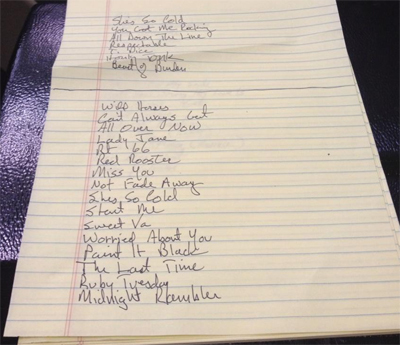 Shes So Cold
You Got Me Rocking
All Down The Line
Respectable
Beast of Burden
Wild Horses
Can't Always Get
All Over Now
Lady Jane
Rt 66
Red Rooster
Miss You
Not Fade Away
Shes So Cold
Start Me
Sweet Va
Worried About You
Paint It Black
The Last Time
Ruby Tuesday
Midnight Rambler